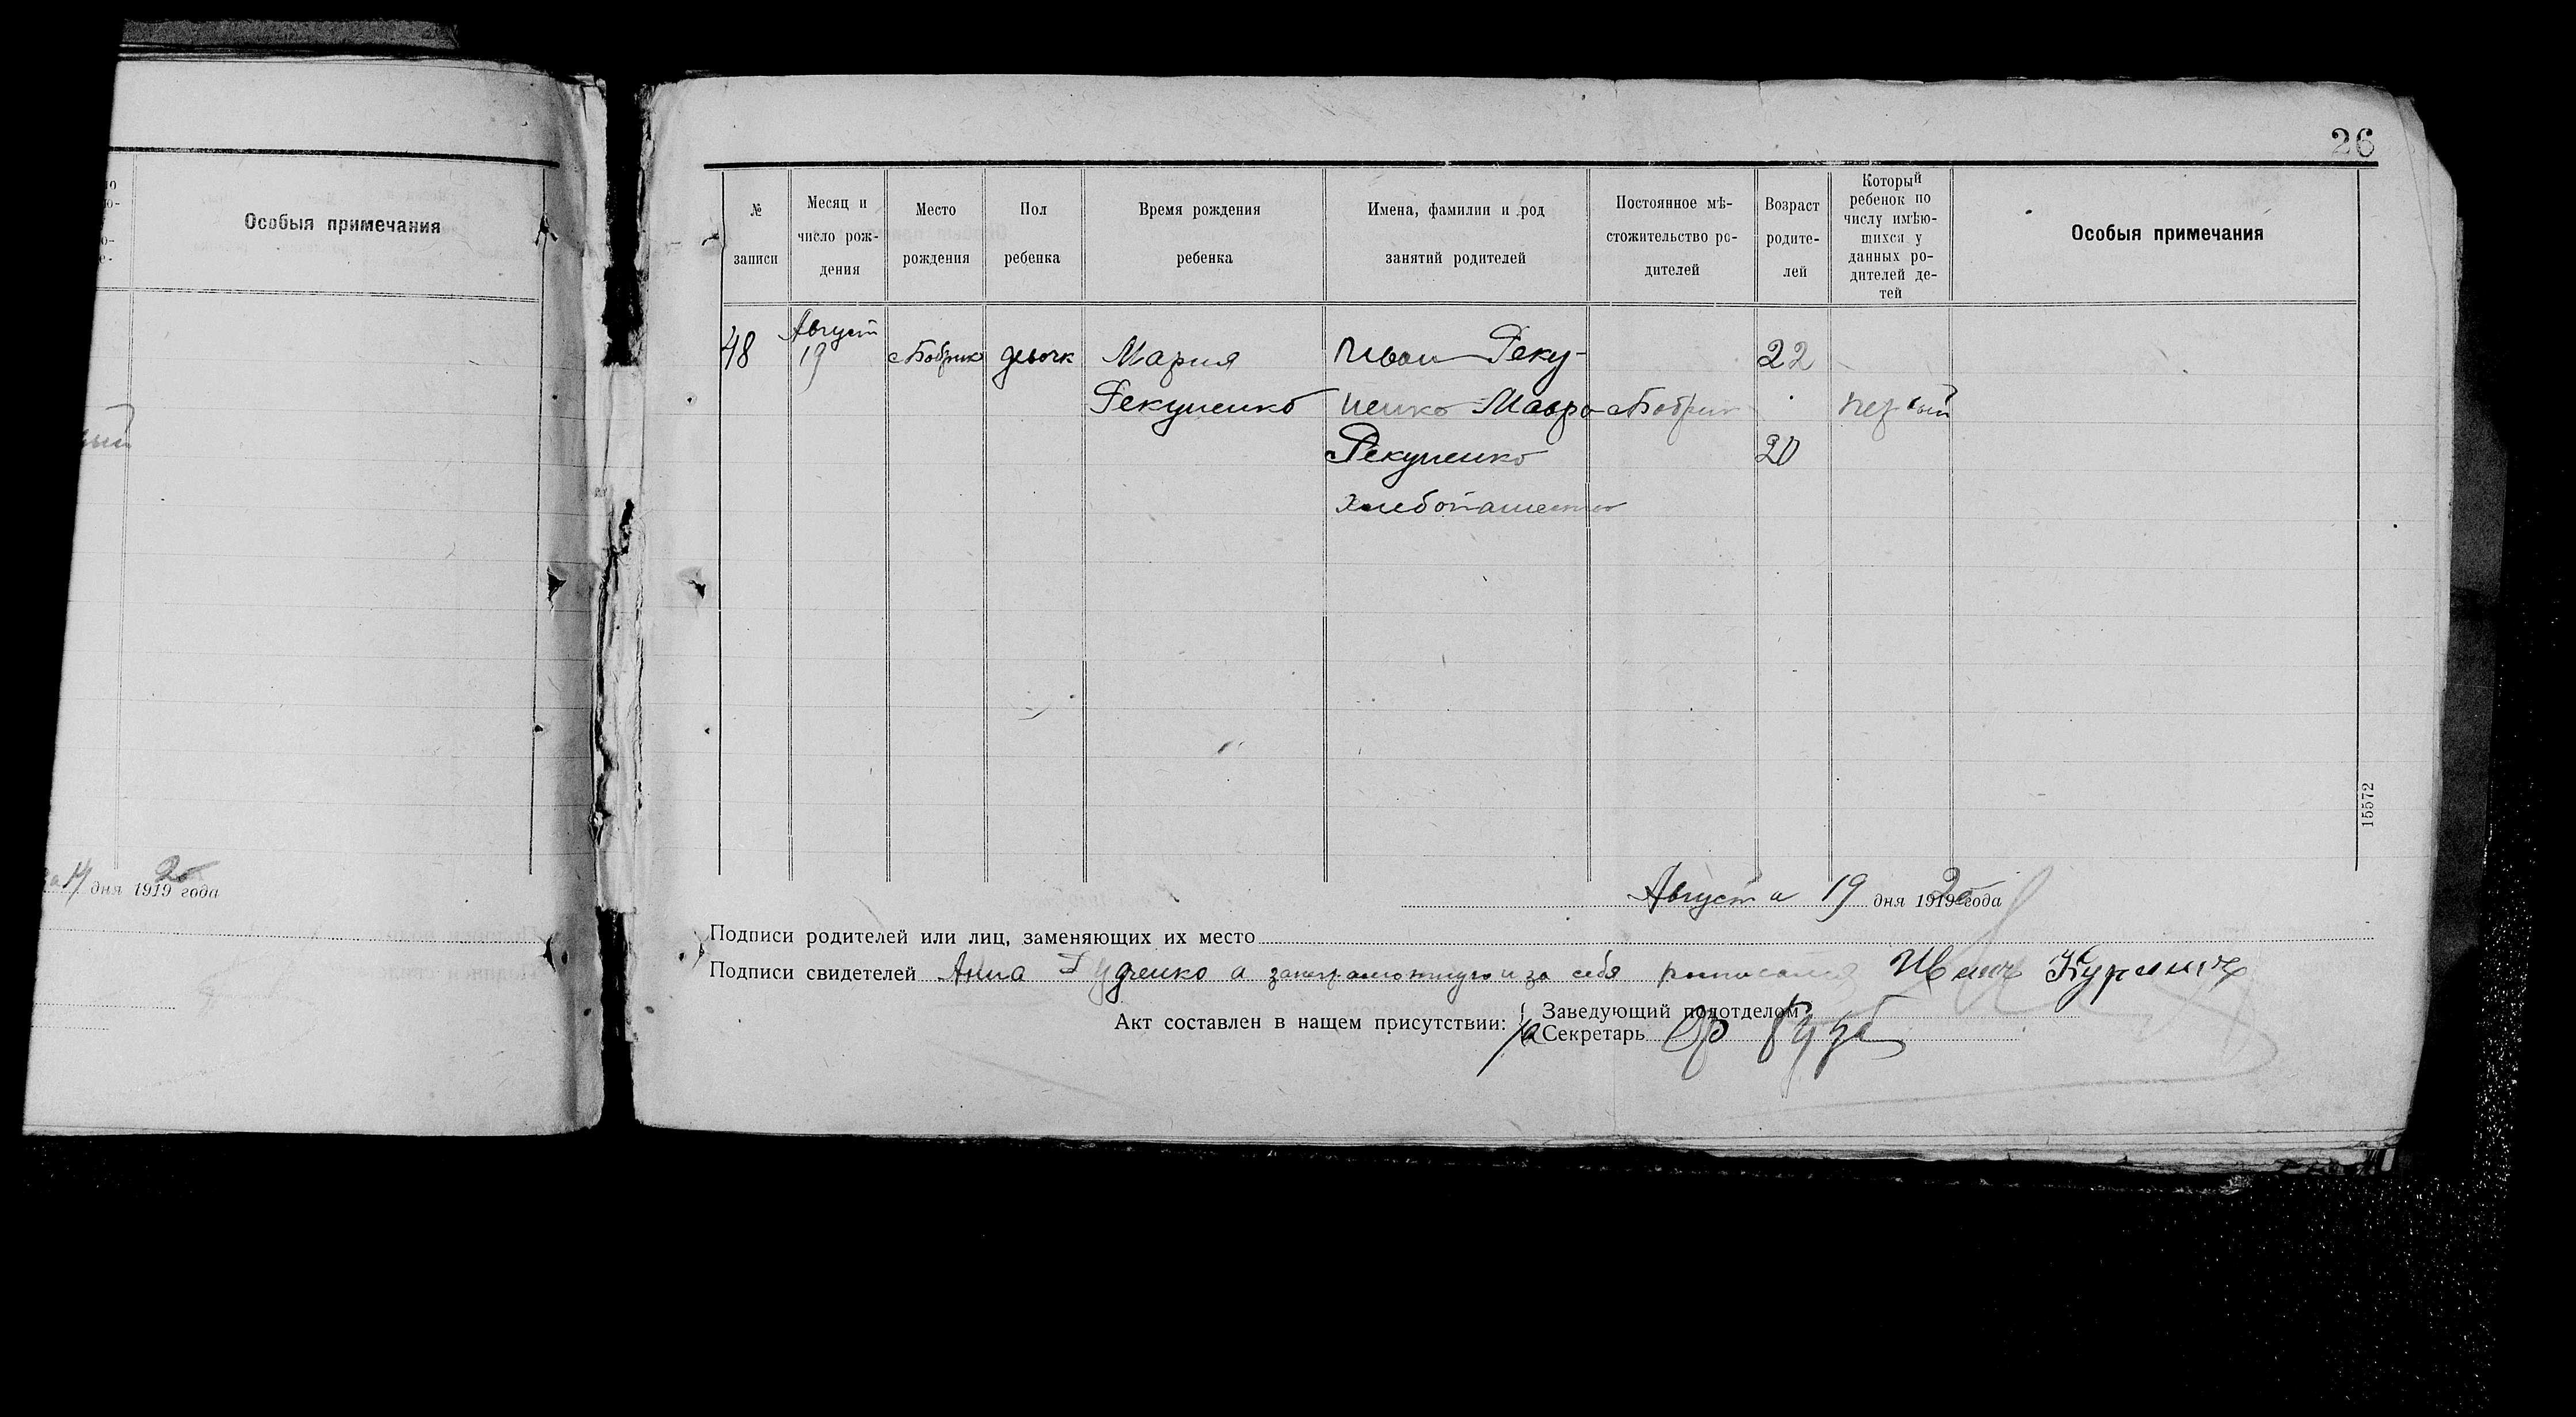 26
Особыя примечания
№ записи
Месяц и число рож-дения
Место рождения
Пол ребенка
Время рождения ребенка
Имена, фамилии и род занятий родителей
Постоянное мѣ-стожительство ро-дителей
Возраст родите-лей
Который ребенок по числу имѣю-шихся у данных ро-дителей де-тей
Особыя примечания
48
Август
19
с Бобрик
девочк
Мария
Рекуненко
Иван Реку-
ненко Мавра
Рекуненко
хлебопашество
с Бобрик
22
20
первый
ый
15572
14 дня 1919 года
20
Августа 19 дня 1919 года
20
Подписи родителей или лиц, заменяющих их место
Подписи свидетелей Анна Гудченко а за неграмотную и за себя росписался
Акт составлен в нащем присутствии:
Заведующий подотделом
Секретарь